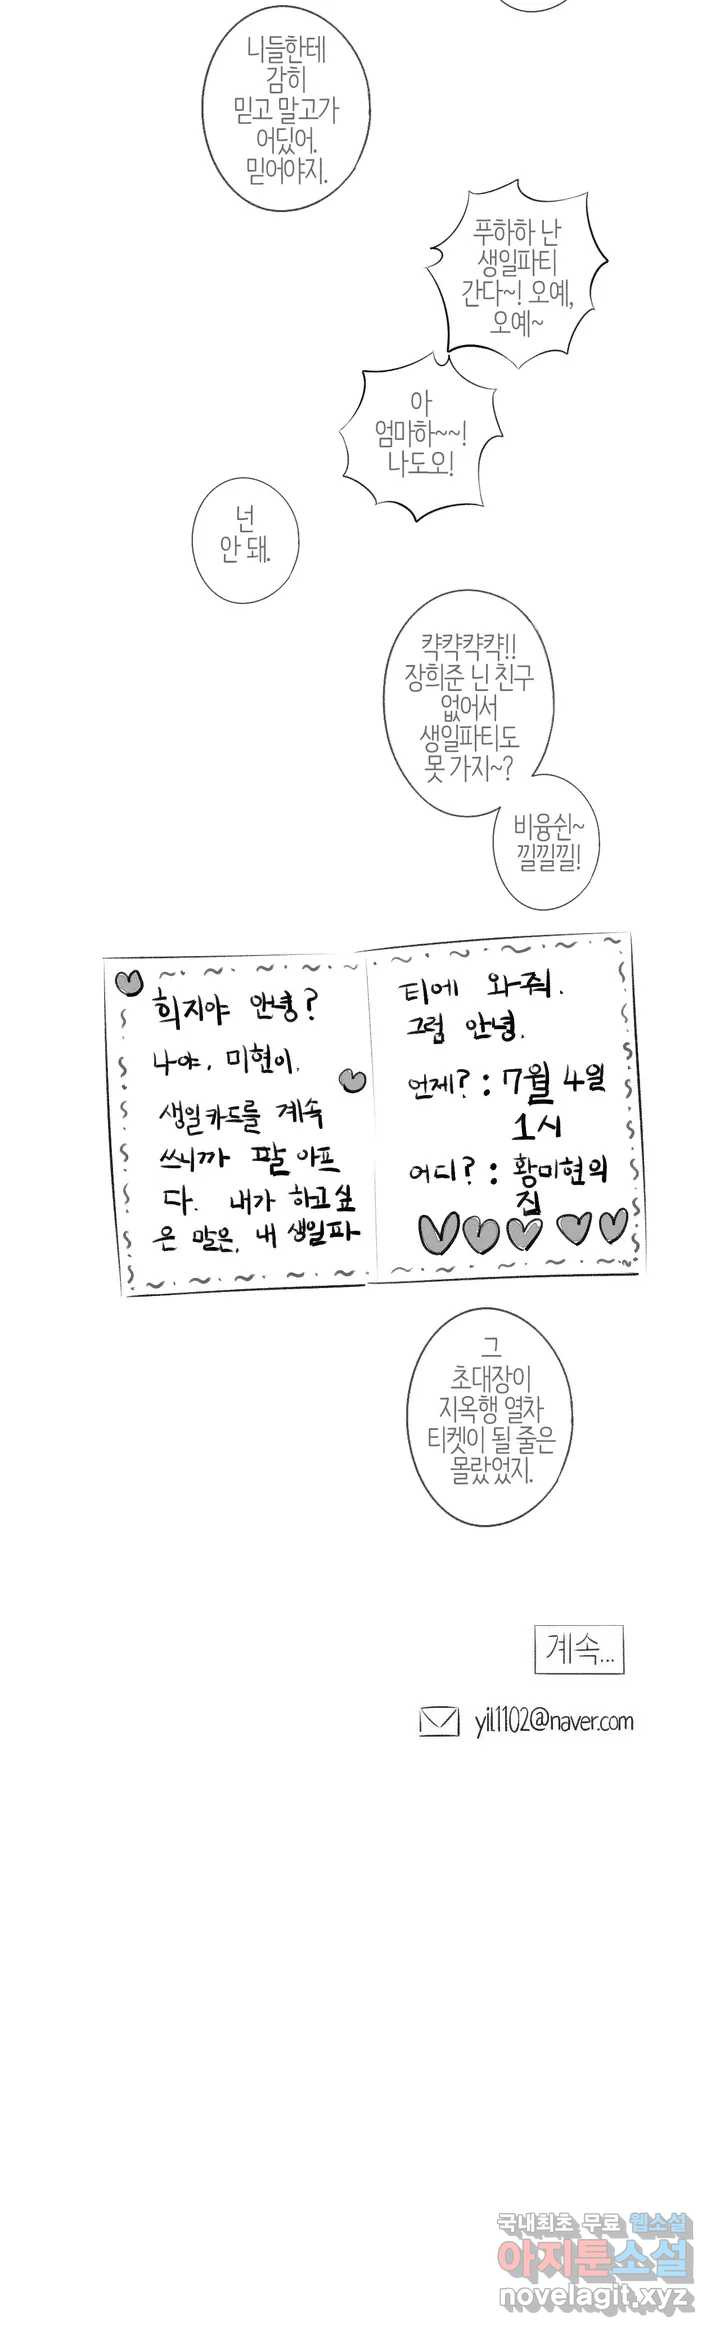 니들한테
감히
믿고 말고가
어딨어.
믿어야지.
푸하하 난
생일파티
간다~! 오예,
오예~
아
엄마하~~!
나도오!
넌
안 돼.
캭캭캭캭!!
장희준 닌 친구
없어서
생일파티도
못 가지~?
비융쉰~
낄낄낄!
희지야 안녕?
나야, 미현이.
생일카드를 계속
쓰니까 팔 아프
다. 내가 하고싶
은 말은, 내 생일파
티에 와줘.
그럼 안녕.
언제?: 7월 4일
1시
어디?: 황미현의
집
그
초대장이
지옥행 열차
티켓이 될 줄은
몰랐었지.
계속...
yil1102@naver.com
국내최초 무료 웹소설
아지툰소설
novelagit.xyz